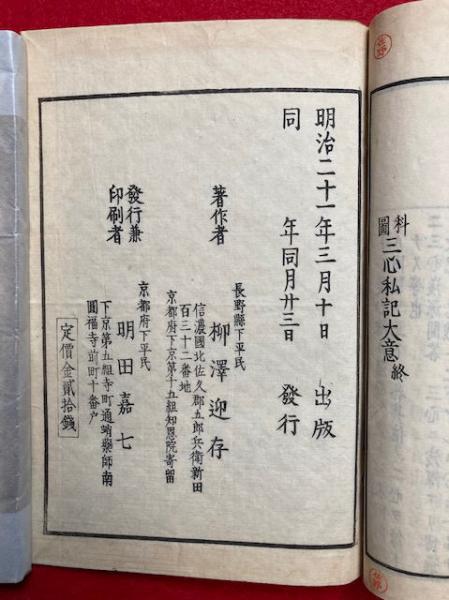 科圖 三心私記大意 終
明治二十一年三月十日 出版
同 年同月廿三日 發行
長野縣下平民
著作者 柳澤迎存
信濃國北佐久郡五郎兵衛新田
百三十二番地
京都府下京第十五組知恩院寄留
京都府下平民
發行兼
印刷者 明田嘉七
下京第五組寺町通蛸藥師南
圓福寺前町十番戶
定價金貳拾錢